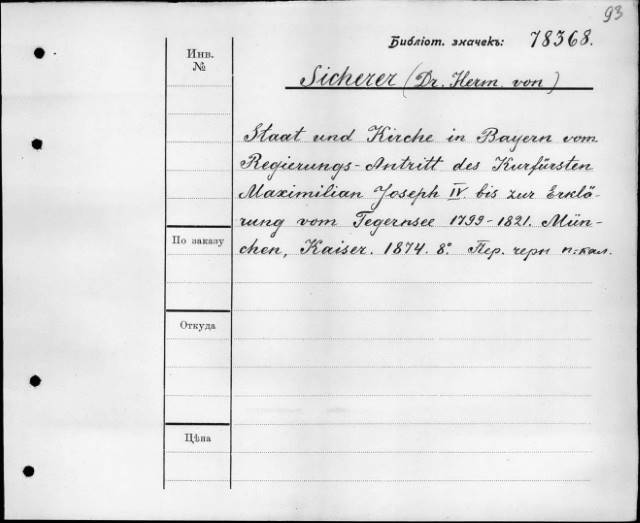 93
Библіот. значекъ: 78368.
Инв.
№
Sicherer (Dr. Herm. von)
Staat und Kirche in Bayern vom
Regierungs-Antritt des Kurfürsten
Maximilian Joseph IV. bis zur Erklä-
rung vom Tegernsee 1799-1821. Mün-
chen, Kaiser. 1874. 8°. Пер. черн п.-кал.
По заказу
Откуда
Цѣна